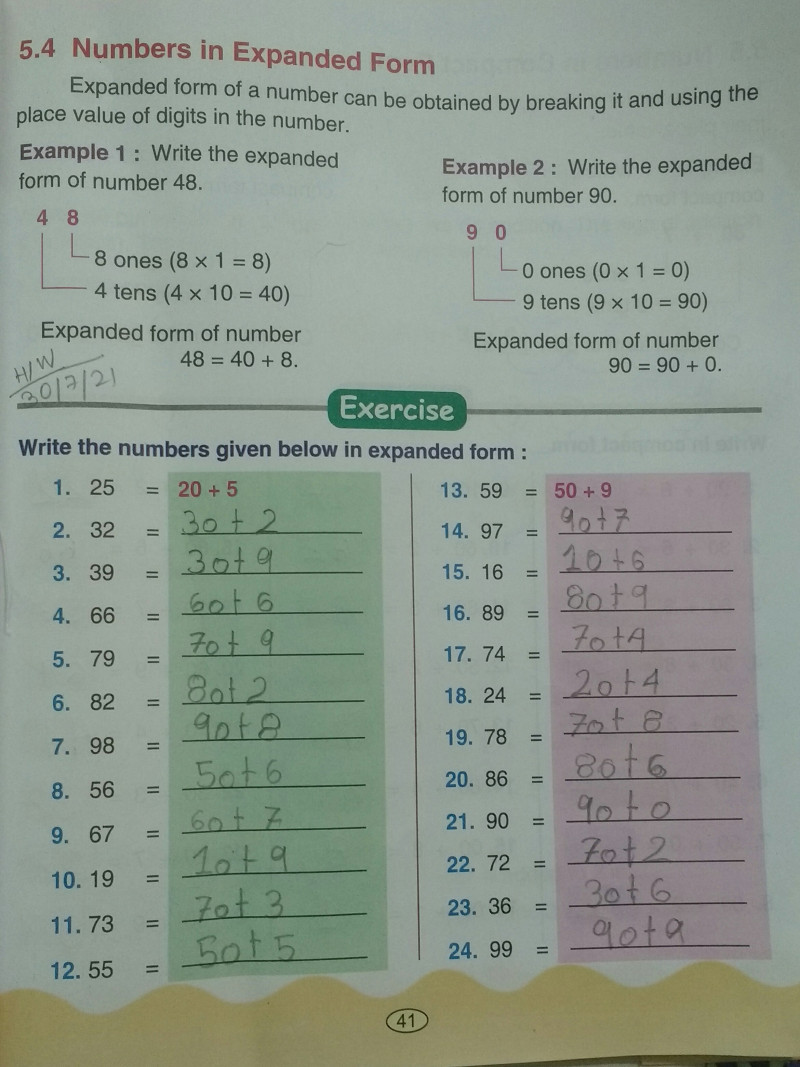 5.4 Numbers in Expanded Form
Expanded form of a number can be obtained by breaking it and using the
place value of digits in the number.
Example 1 : Write the expanded
form of number 48.
4 8
8 ones (8 × 1 = 8)
4 tens (4 × 10 = 40)
Expanded form of number
48 = 40 + 8.
Example 2 : Write the expanded
form of number 90.
9 0
0 ones (0 × 1 = 0)
9 tens (9 × 10 = 90)
Expanded form of number
90 = 90 + 0.
H/W
30/7/21
Exercise
Write the numbers given below in expanded form :
1. 25 = 20 + 5
2. 32 = 30 + 2
3. 39 = 30 + 9
4. 66 = 60 + 6
5. 79 = 70 + 9
6. 82 = 80 + 2
7. 98 = 90 + 8
8. 56 = 50 + 6
9. 67 = 60 + 7
10. 19 = 10 + 9
11. 73 = 70 + 3
12. 55 = 50 + 5
13. 59 = 50 + 9
14. 97 = 90 + 7
15. 16 = 10 + 6
16. 89 = 80 + 9
17. 74 = 70 + 4
18. 24 = 20 + 4
19. 78 = 70 + 8
20. 86 = 80 + 6
21. 90 = 90 + 0
22. 72 = 70 + 2
23. 36 = 30 + 6
24. 99 = 90 + 9
41